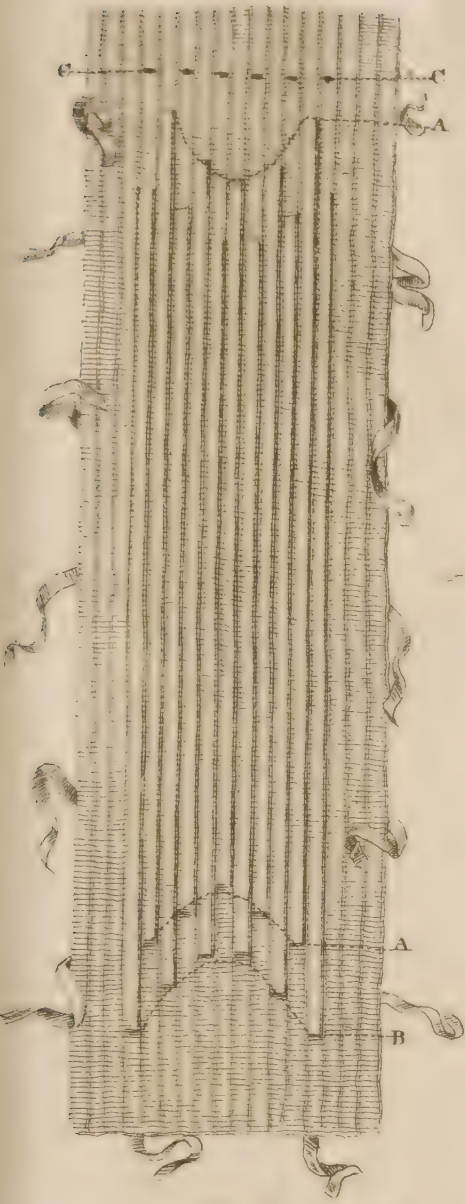 C C
A
A
B